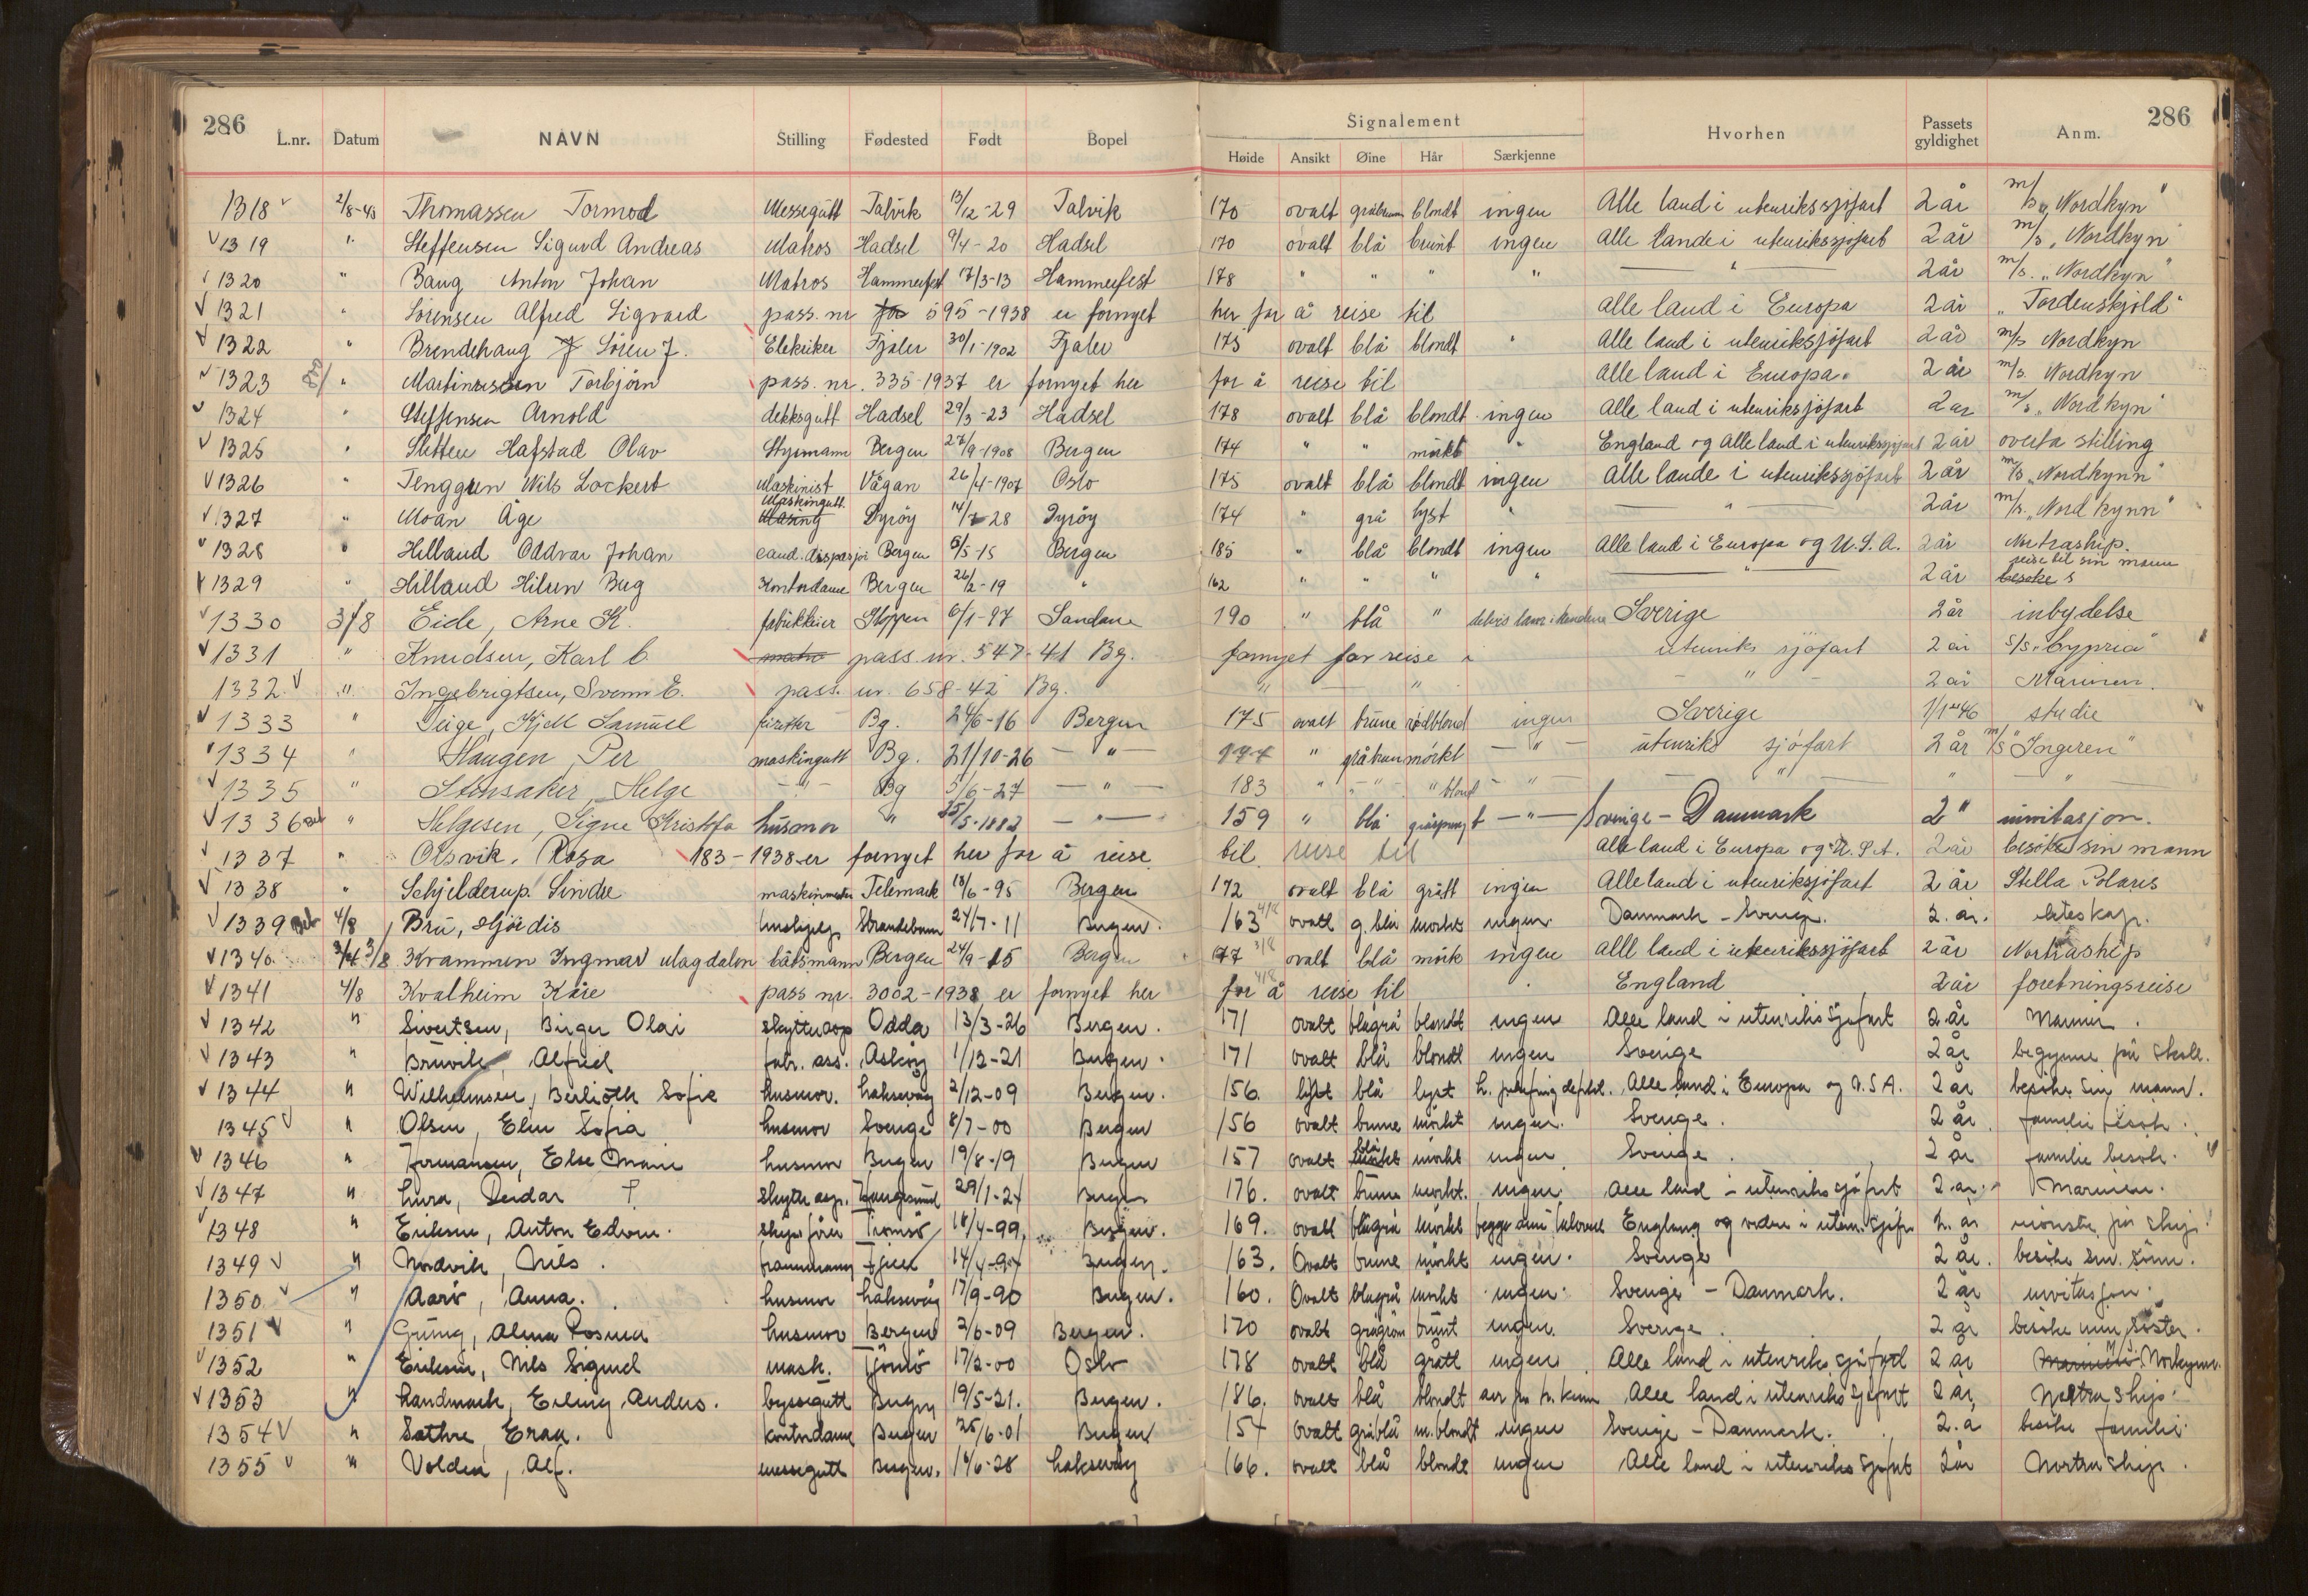 286 286
Signalement
L.nr. Datum NAVN Stilling Fødested Født Bopel Høide Ansikt Øine Hår Særkjenne Hvorhen Passets gyldighet Anm.
1318 2/8-45 Thomassen Tormod Messegutt Talvik 13/12-29 Talvik 170 ovalt gråbrune blondt ingen Alle land i utenrikssjøfart 2 år m/s „Nordkyn"
1319 " Steffensen Sigurd Andreas Matros Hadsel 9/4-20 Hadsel 170 ovalt blå brunt ingen Alle land i utenrikssjøfart 2 år m/s „Nordkyn"
1320 " Baug Anton Johan Matros Hammerfest 17/3-13 Hammerfest 178 " " " " — " — 2 år m/s. „Nordkyn"
1321 " Sørensen Alfred Sigvard pass. nr 595-1938 er fornyet her for å reise til alle land i Europa 2 år „Tordenskjold"
1322 " Brendehaug Søren J. Elektriker Fjaler 30/1-1902 Fjaler 175 ovalt blå blondt " Alle land i utenriksjøfart 2 år m/s Nordkyn
1323 " Martinussen Torbjørn pass. nr. 335-1937 er fornyet her for å reise til alle land i Europa. 2 år m/s. Nordkyn
1324 " Steffensen Arnold dekksgutt Hadsel 29/3-23 Hadsel 178 ovalt blå blondt ingen Alle land i utenriksjøfart 2 år m/s „Nordkyn"
1325 " Sletten Hafstad Olav Styrmann Bergen 27/9-1908 Bergen 174 " " mørkt " England og alle land i utenrikssjøfart 2 år overta stilling
1326 " Tenggren Nils Lockert Maskinist Vågan 26/4-1907 Oslo 175 ovalt blå blondt ingen Alle lande i utenrikssjøfart 2 år m/s „Nordkynn"
1327 " Moan Åge Maskingutt Dyrøy 14/7-28 Dyrøy 174 " grå lyst " — " — 2 år m/s. „Nordkynn"
1328 " Hilland Oddvar Johan cand. dispasjør Bergen 6/5-15 Bergen 185 " blå blondt ingen Alle land i Europa og U.S.A. 2 år Nortraship.
1329 " Hilland Hilun Berg Kontordame Bergen 26/2-19 " 162 " " " " — " — 2 år reise til sin mann
1330 3/8 Eide, Arne K. fabrikkeier Gloppen 6/1-97 Sandane 190 " blå " Sverige 2 år inbydelse
1331 " Knudsen, Karl C. pass nr. 547-41 Bg. fornyet for reise i utenriks sjøfart 2 år s/s. „Cypria"
1332 " Ingebrigtsen, Svenn E. pass. nr. 658-42 Bg. " — " — " — 2 år Marinen.
1333 " Teige, Kjell Samuel Bg. 24/6-16 Bergen 175 ovalt brune rødblond ingen Sverige 1/1-46 studie
1334 " Haugen, Per maskingutt Bg. 21/10-26 — " — 174 " gråbrun mørkt — " — utenriks sjøfart 2 år m/s „Ingeren"
1335 " Stensaker, Helge — " — Bg 5/6-27 — " — 183 " " " blond — " — — " — " — " —
1336 " Helgesen, Signe Kristofa husmor " 25/5-1882 — " — 159 " blå gråsprengt — " — Sverige - Danmark 2 " invitasjon.
1337 " Olsvik, Rosa 183-1938 er fornyet her for å reise til reise til alle land i Europa og U.S.A. 2 år besøke sin mann
1338 " Schjelderup. Sindre maskinmester Telemark 18/6-95 Bergen 172 ovalt blå grått ingen Alle land i utenriksjøfart 2 år Stella Polaris
1339 4/8 Bru, Hjørdis hushjelp Strandebarm 24/7-11 Bergen. 163 4/8 ovalt g. blå mørkt ingen. Danmark - Sverige. 2. år. ekteskap.
1340 3/8 Krammen Ingmar Magdalon båtsmann Bergen 24/9-15 Bergen 177 3/8 ovalt blå mørk ingen alle land i utenrikssjøfart 2 år Nortraship
1341 4/8 Kvalheim Kåre pass nr. 3002-1938 er fornyet her for å 4/8 reise til England 2 år foretningsreise
1342 " Sivertsen, Birger Olai skytterasp Odda 13/3-26 Bergen. 171 ovalt blågrå blondt ingen Alle land i utenriks sjøfart 2 år Marinen.
1343 " Bruvik, Alfred fabr. ass. Askøy 1/12-21 Bergen. 171 ovalt blå blondt ingen Sverige 2 år begynne på skole.
1344 " Wilhelmsen, Berlioth Sofie husmor. Laksevåg 2/12-09 Bergen. 156. blå lyst Alle land i Europa og U.S.A. 2 år besøke sin mann.
1345 " Olsen, Elin Sofia husmor Sverige 8/7-00 Bergen 156 ovalt brune mørkt ingen. Sverige. 2 år. familie besøk.
1346 " Jormansen, Else Marie husmor Bergen 19/8-19 Bergen 157 ovalt blå mørkt ingen Sverige. 2 år familie besøk.
1347 " Lura, Peidar skytterasp. Haugesund 29/1-24 Bergen 176. ovalt brune mørkt. ingen. Alle land i utenriks sjøfart 2 år. Marinen.
1348 " Eriksen, Anton Edvin. skipsfører Tromsø 18/4-99 Bergen. 169. ovalt blågrå mørkt England og videre i uten. sjøf. 2. år mønstre på skip.
1349 " Nordvik, Nils. brannmann 14/4-94 Bergen. 163. Ovalt brune mørkt ingen. Sverige 2 år. besøke sin sønn.
1350 " Aarø, Anna. husmor Laksevåg 17/9-90 Bergen. 160. Ovalt blågrå mørkt ingen. Sverige - Danmark. 2 år invitasjon.
1351 " Grung, Alma Rosina husmor Bergen 2/6-09 Bergen. 170 ovalt grågrøn brunt ingen. Sverige. 2 år besøke min søster.
1352 " Eriksen, Nils Sigurd mask. Tjømø 17/2-00 Oslo 178 ovalt blå grått ingen Alle land i utenriks sjøfart 2 år Norkynn.
1353 " Landmark, Erling Anders. byssegutt Bergen 19/5-21. Bergen. 186. ovalt blå blondt arr på h. kinn Alle land i utenriks sjøfart 2 år Nortraship.
1354 " Sathre, Erna. kontordame Bergen 25/6-01 Bergen 154 ovalt gråblå m. blondt ingen Sverige - Danmark. 2. å besøke familie.
1355 " Volden, Alf. messegutt Bergen. 14/6-28 Laksevåg 166. ovalt blå blondt ingen Alle land i utenriks sjøfart 2 år Nortraship.